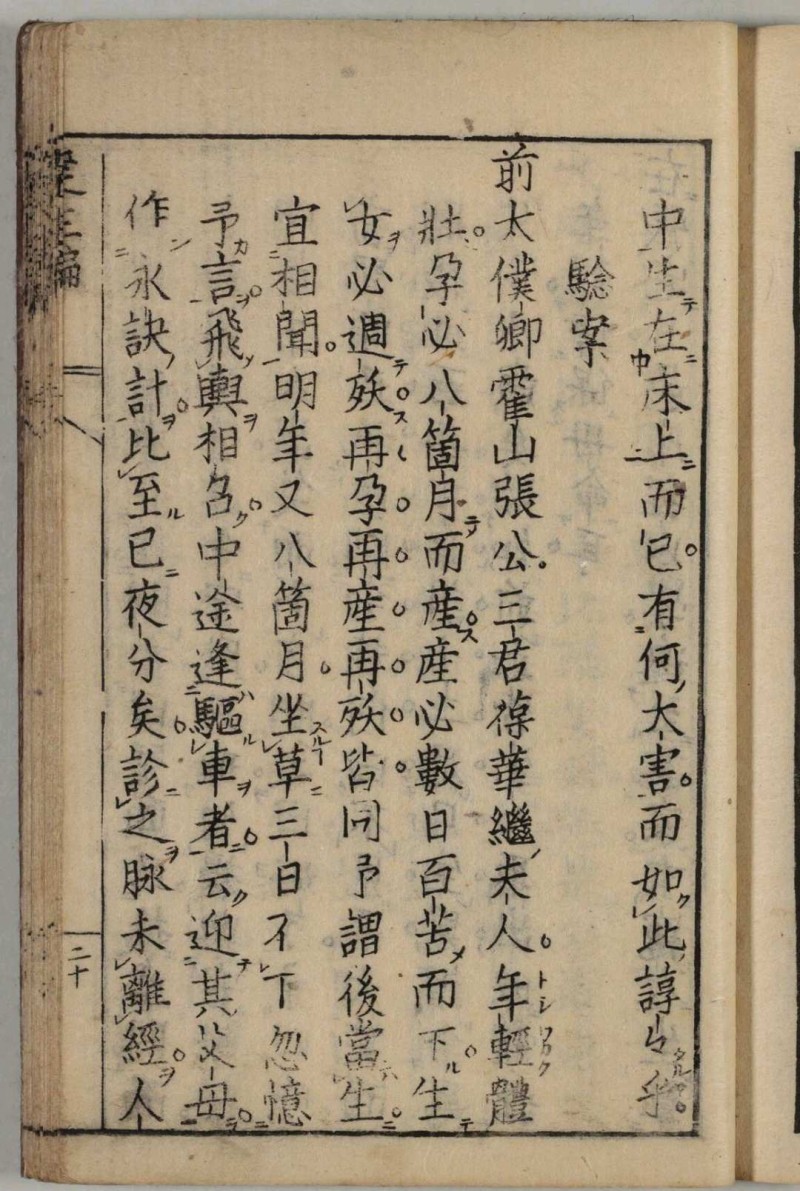 中生在床上而已有何大害而如此諄々乎
驗案
前太僕卿霍山張公三君葆華繼夫人年輕體
壯孕必八箇月而産産必數日百苦而下生
女必週殀再孕再産再殀皆同予謂後當生
宜相聞明年又八箇月坐草三日不下忽憶
予言飛輿相召中途逢驅車者云迎其父母
作永訣計比至已夜分矣診之脉未離經人
達生編
二十